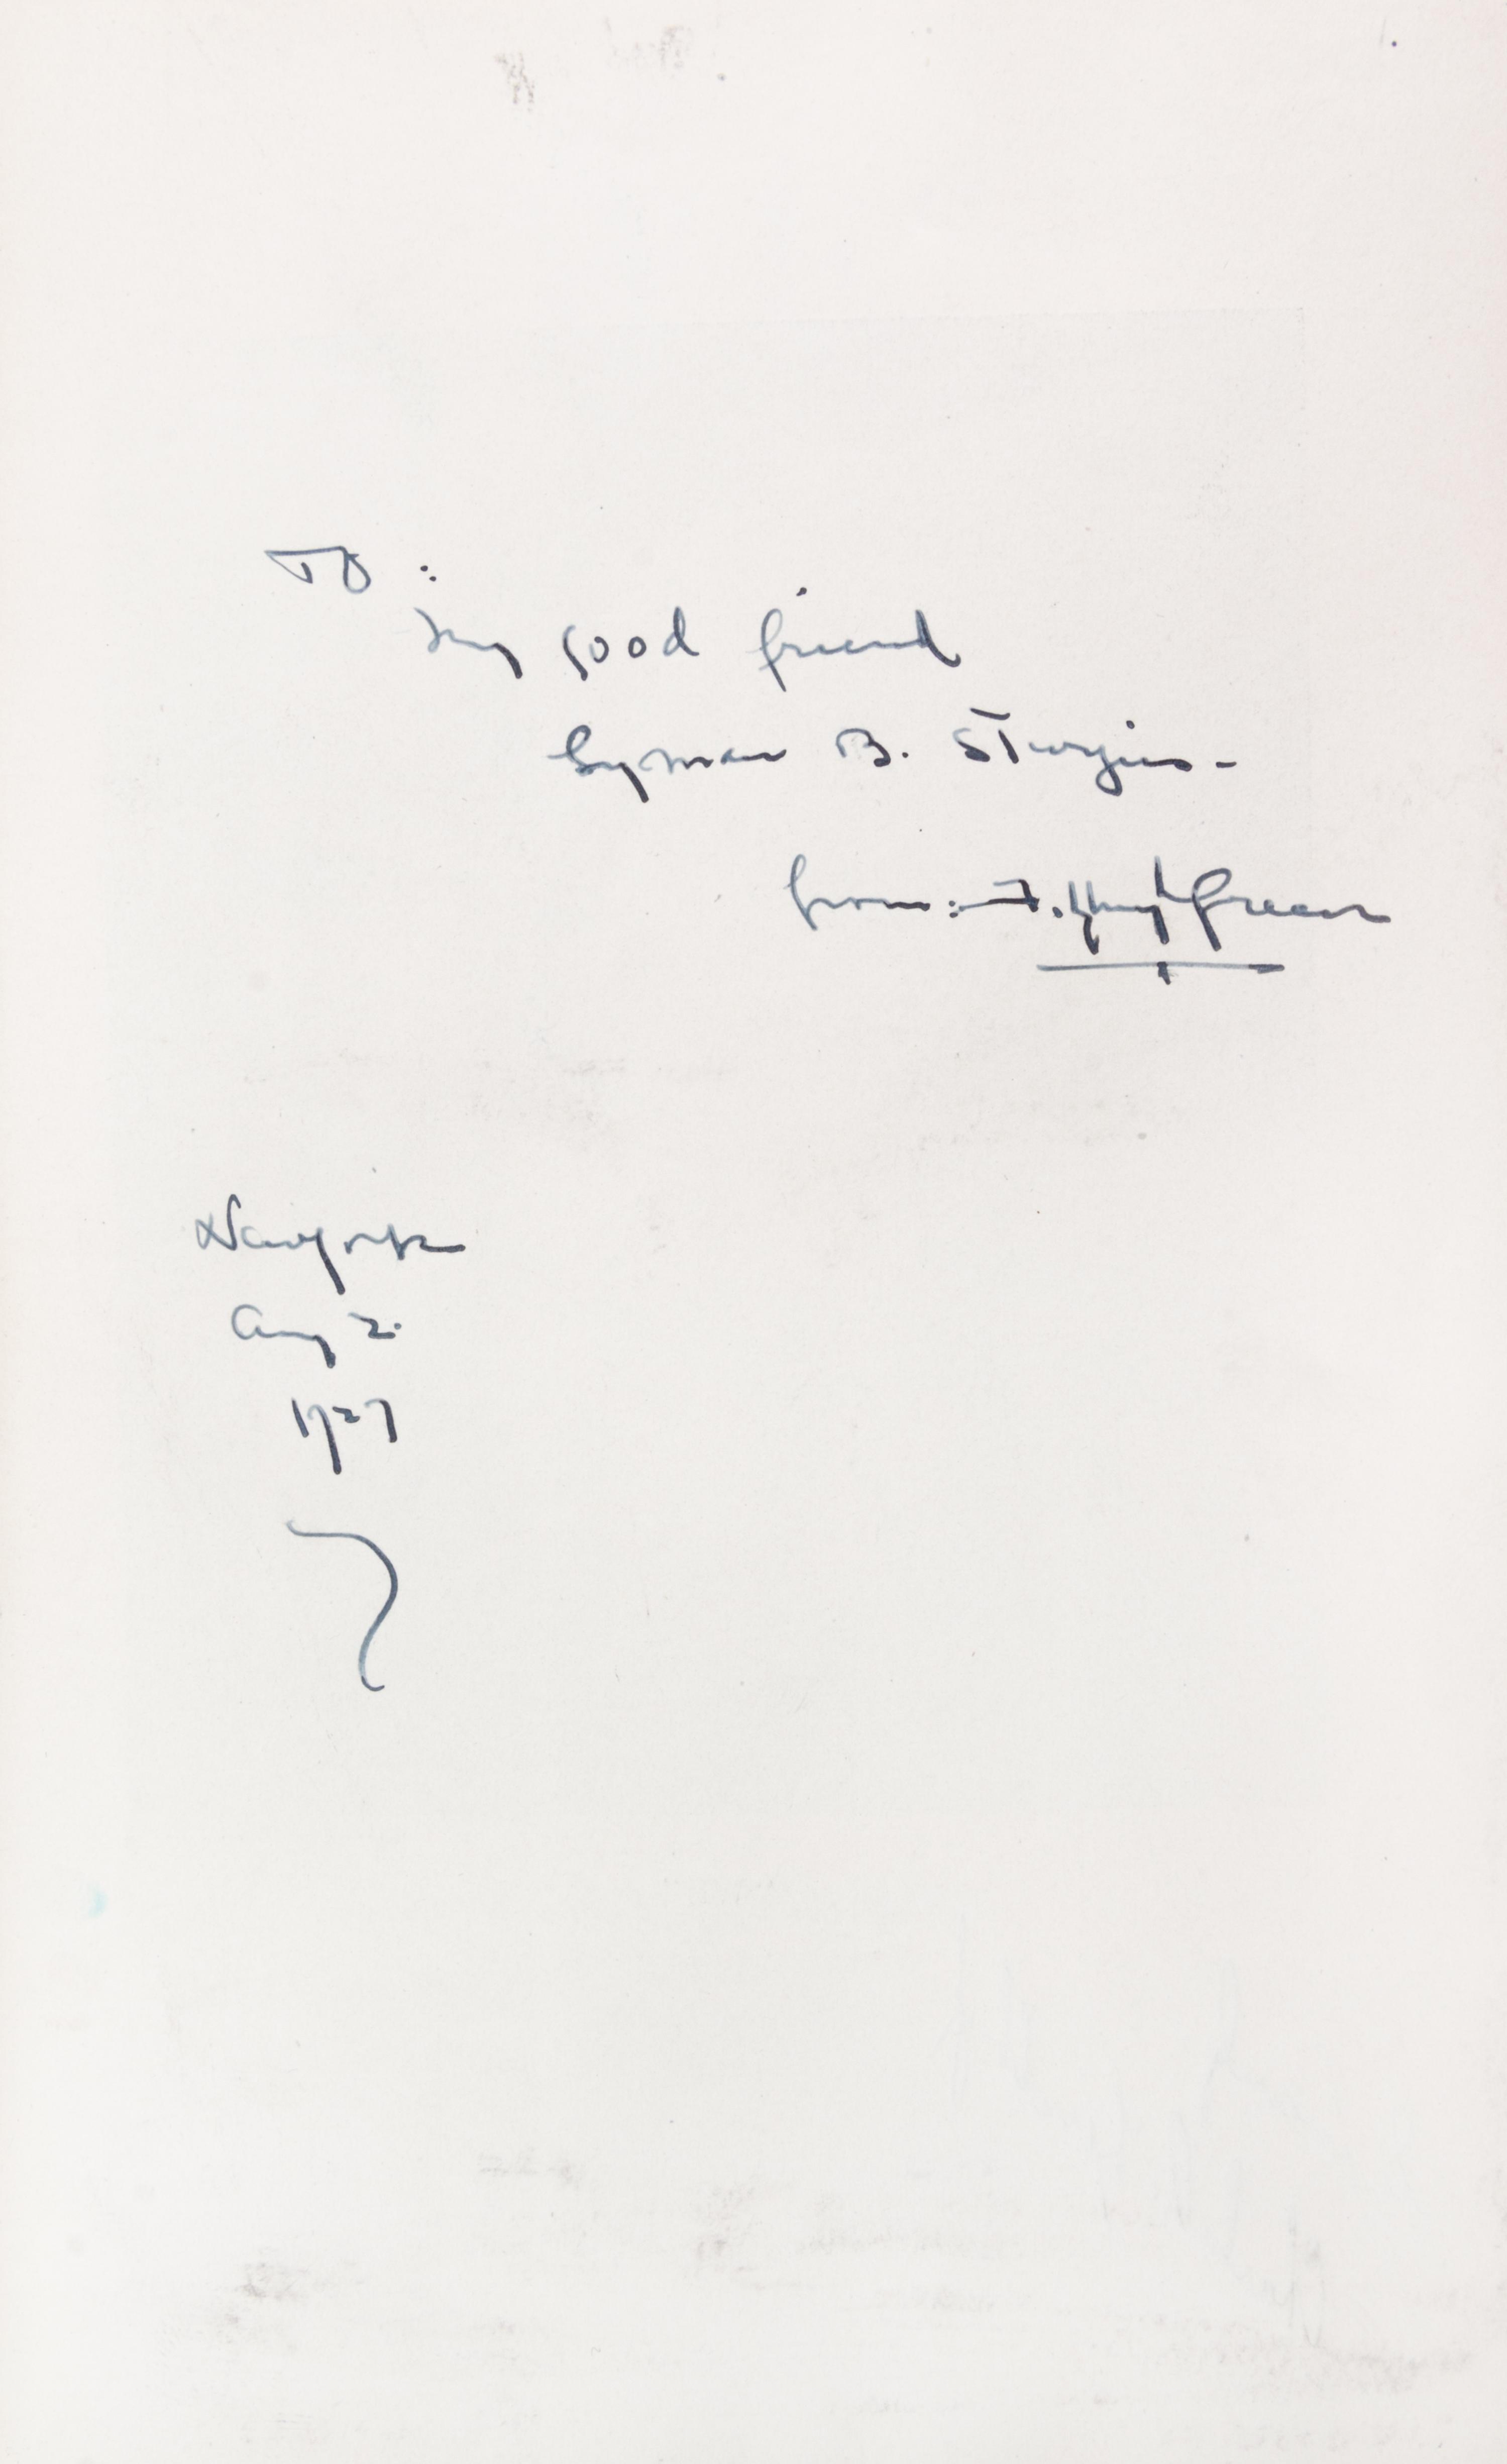 To:
my good friend
Lyman B. Sturgis -
from: F. Green
New York
Aug 2.
1927